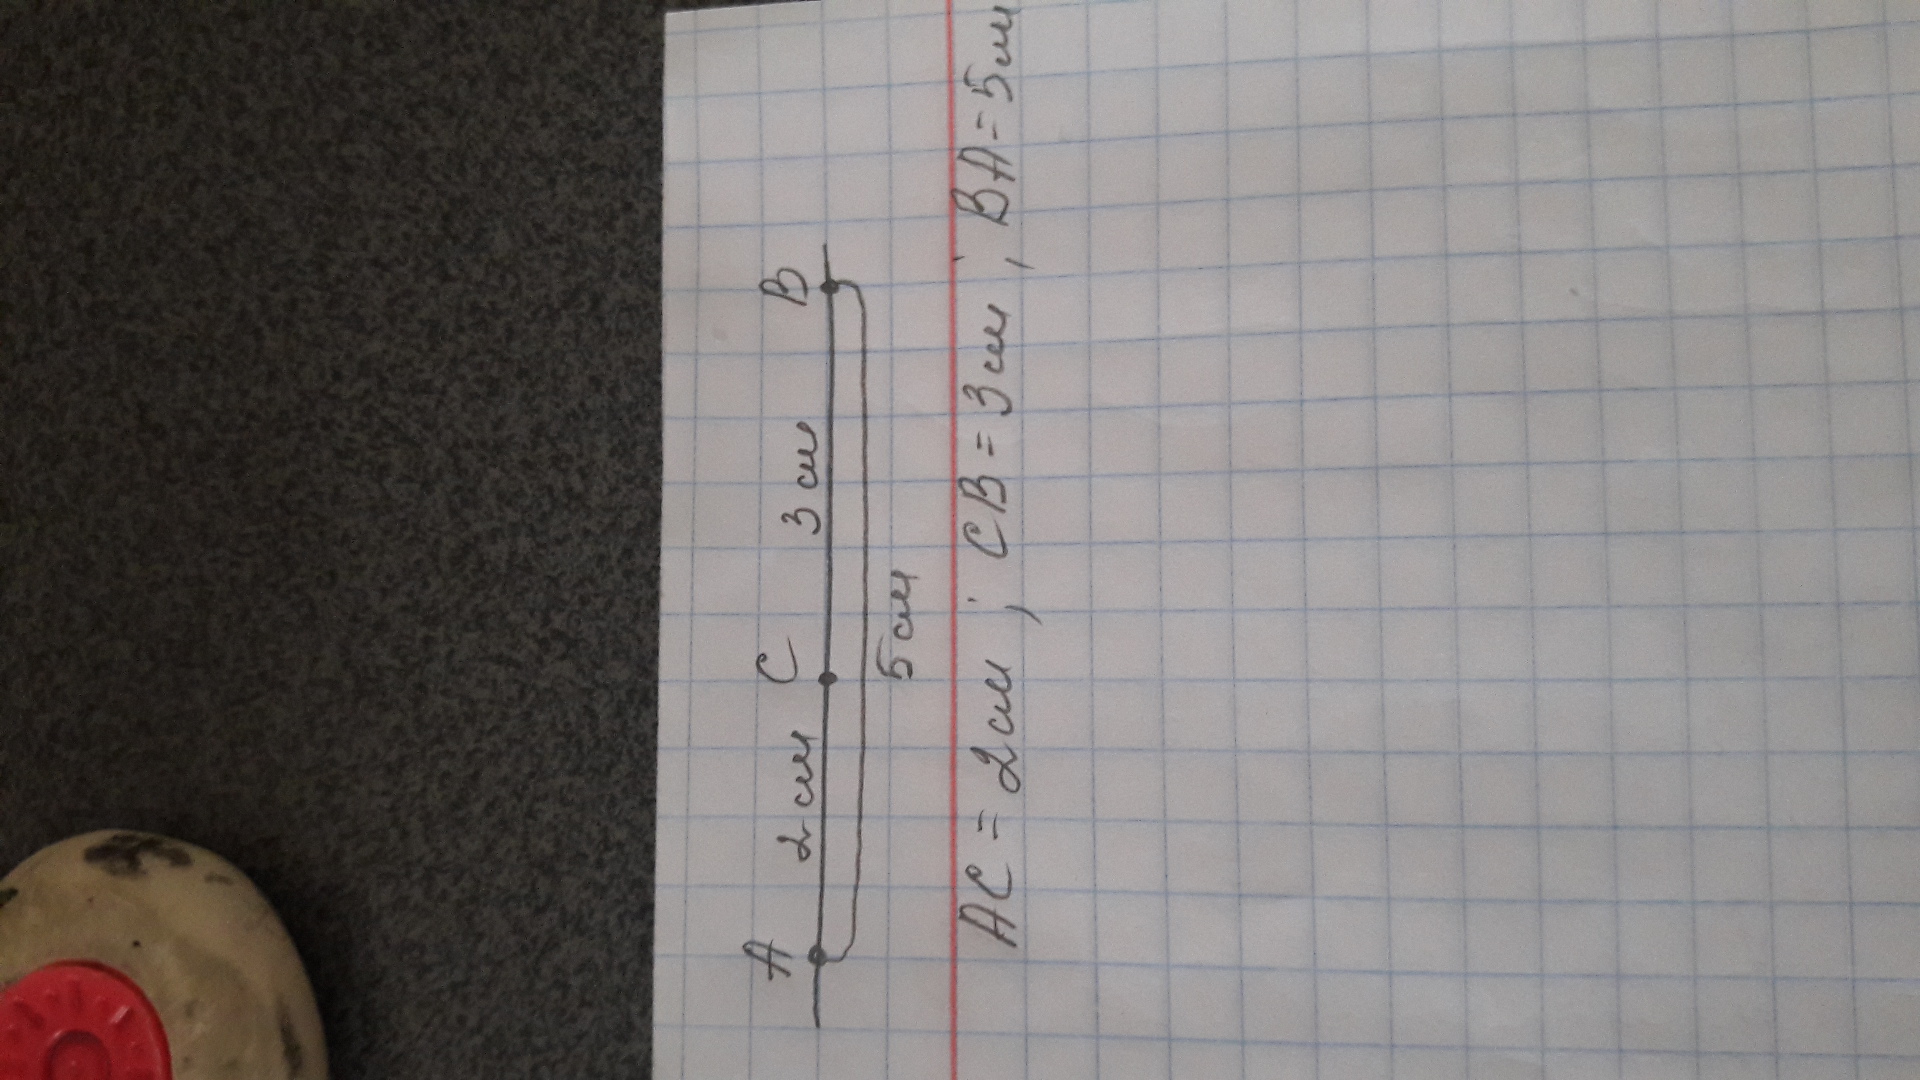 A C B
2 см 3 см
5 см
AC = 2 см ; CB = 3 см ; BA = 5 см